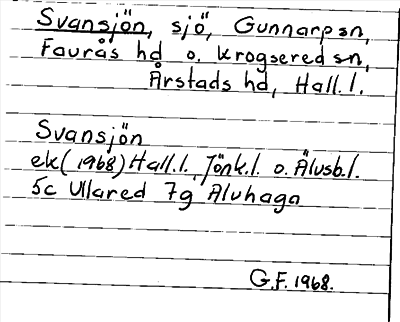 Svansjön, sjö, Gunnarp sn,
Faurås hd o. Krogsered sn,
Årstads hd, Hall. l.
Svansjön
ek (1968) Hall. l. Jönk. l. o. Älvsb. l.
5c Ullared 7g Älvhaga
G.F. 1968.